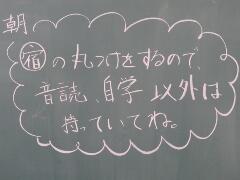 朝
宿の丸つけをするので、
音読、自学以外は
持っていてね。